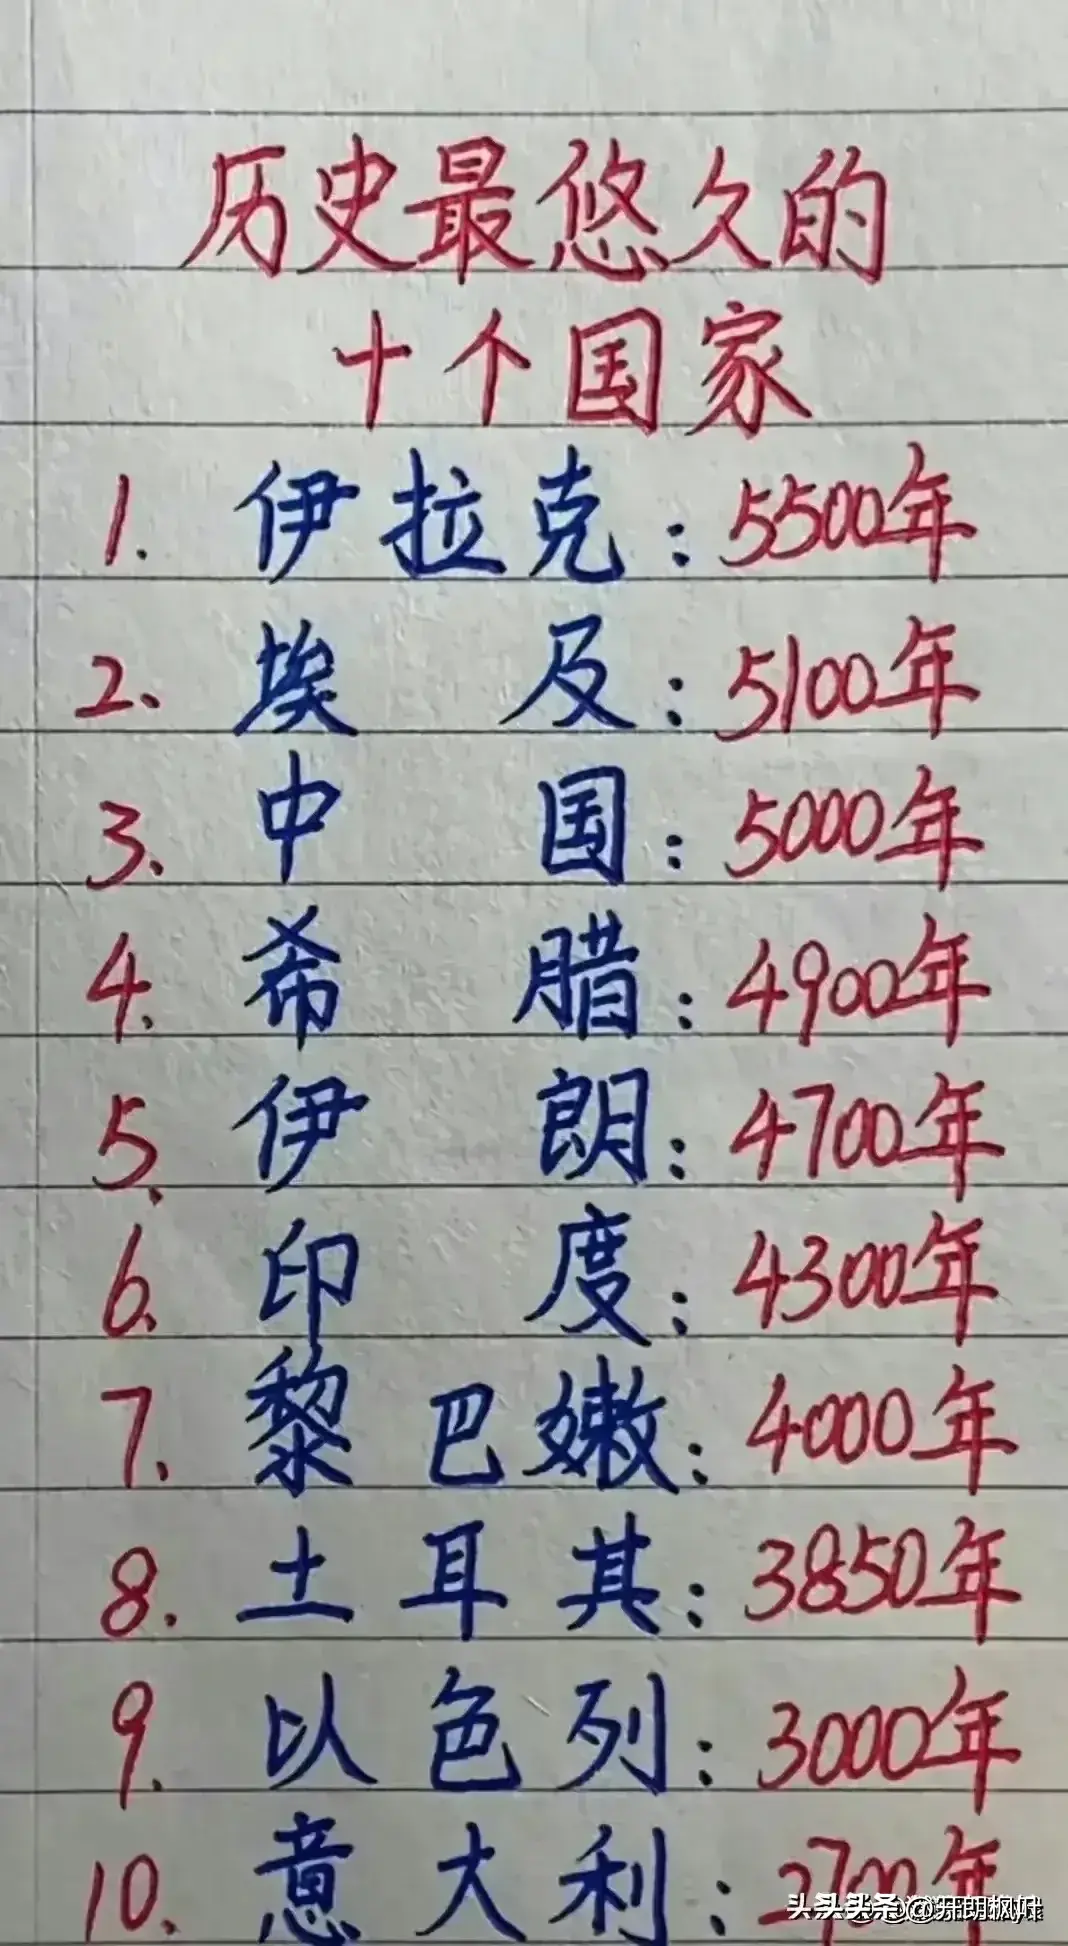 历史最悠久的
十个国家
1. 伊拉克：5500年
2、埃及：5100年
3、中国：5000年
4、希腊：4900年
5、伊朗：4700年
6、印度：4300年
7、黎巴嫩：4000年
8. 土耳其：3850年
9. 以色列：3000年
10. 意大利：2700年
头条 @开朗枫叶